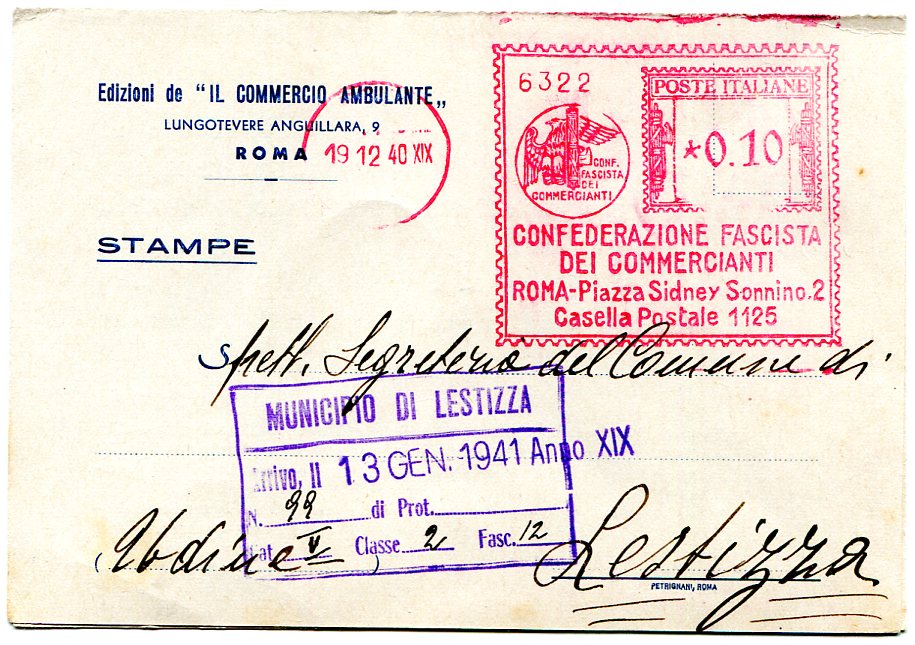 Edizioni de "IL COMMERCIO AMBULANTE„
LUNGOTEVERE ANGUILLARA, 9
ROMA
19 12 40 XIX
STAMPE
6322
POSTE ITALIANE
*0.10
CONF.
FASCISTA
DEI
COMMERCIANTI
CONFEDERAZIONE FASCISTA
DEI COMMERCIANTI
ROMA-Piazza Sidney Sonnino.2
Casella Postale 1125
Spett. Segreteria del Comune di
MUNICIPIO DI LESTIZZA
Arrivo, il 13 GEN. 1941 Anno XIX
N. 99 di Prot.
Cat V Classe 2 Fasc. 12
(Udine)
Lestizza
PETRIGNANI, ROMA